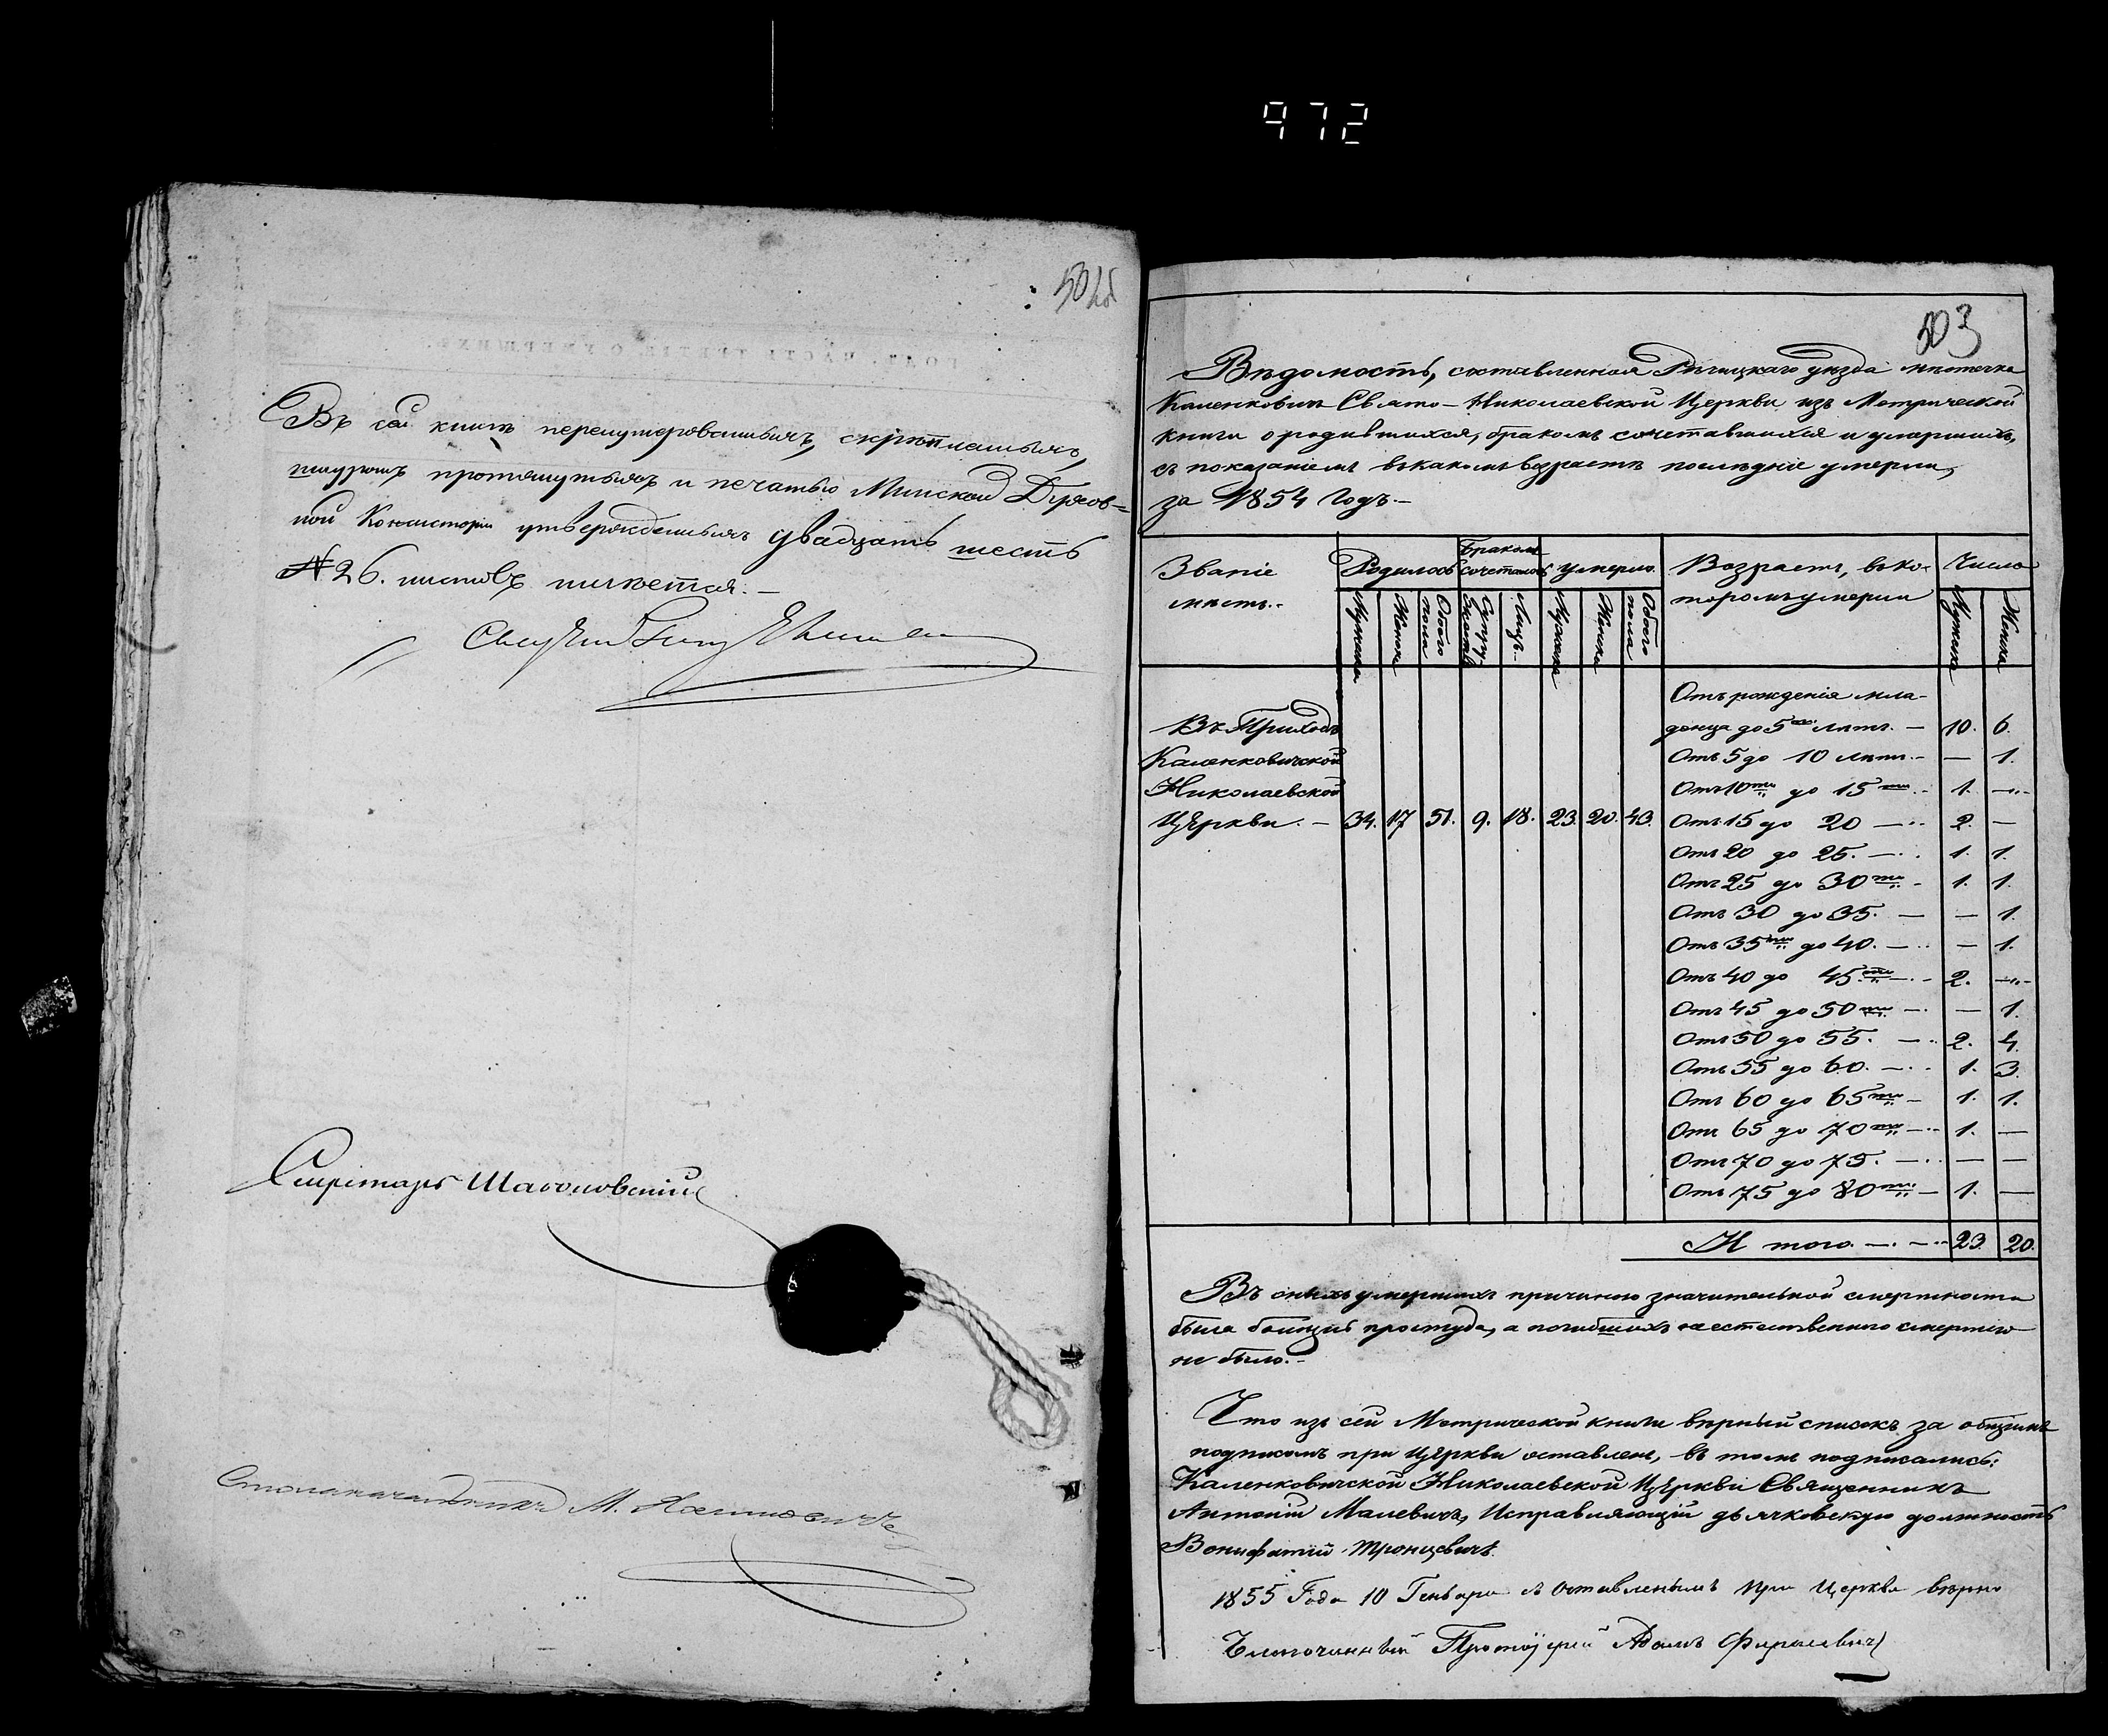 972
502об
Въ сей книгѣ перенумерованныхъ, скрѣпленныхъ,
шнуромъ протянутыхъ и печатью Минской Духов=
ной Консисторіи утвержденныхъ двадцать шесть
№ 26. листовъ имѣется.—
Секретарь
Столоначальникъ М.
503
Вѣдомость, составленная Рѣчицкаго уѣзда мѣстечка
Каленковичъ Свято-Николаевской Церкви изъ Метрической
книги о родившихся, бракомъ сочетавшихся и умершихъ,
съ показаніемъ въ какомъ возрастѣ послѣдніе умерли,
за 1854 Годъ.—
Званіе мѣстъ.. Родилось Бракомъ сочеталось умерло. Возрастъ, въ ко- торомъ умерли Число
Мужска Женска Обоего пола Супружествъ Лицъ.. Мужска Женска Обоего пола Мужска Женска
Отъ рожденія мла-
Въ Приходѣ денца до 5 лѣтъ. — 10. 6.
Каленковичской Отъ 5 до 10 лѣтъ.— — 1.
Николаевской Отъ 10ти до 15ти.. 1. —
Церкви.— 34. 17 51. 9. 18. 23. 20. 43. Отъ 15 до 20 — 2. —
Отъ 20 до 25. — 1. 1.
Отъ 25 до 30ти - 1. 1.
Отъ 30 до 35. — — 1.
Отъ 35ти до 40. — — 1.
Отъ 40 до 45ти — 2. —
Отъ 45 до 50ти — — 1.
Отъ 50 до 55. — 2. 4.
Отъ 55 до 60. — 1. 3.
Отъ 60 до 65ти — 1. 1.
Отъ 65 до 70ти — 1. —
Отъ 70 до 75. — — —
Отъ 75 до 80ти — 1. —
И того. — 23. 20.
Въ сихъ умершихъ причиною значительной смертности
была простуда, а погибшихъ неестественною смертію
не было.—
Что изъ сей Метрической книги вѣрный списокъ за общимъ
подписомъ при Церкви оставленъ, въ томъ подписались:
Каленковичской Николаевской Церкви Священникъ
Антоній Малевичъ, Исправляющій дьячковскую должность
Вонифатій Тронцевичъ.
1855 Года 10 Генваря съ оставленнымъ при Церкви вѣрно
Благочинный Протоіерей Адамъ